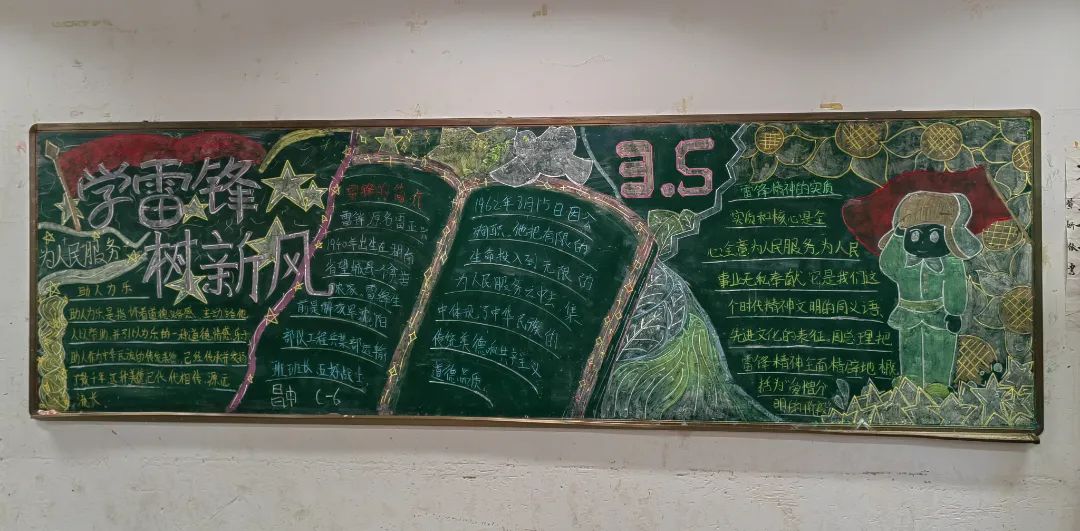 学雷锋
树新风
为人民服务
助人为乐
助人为乐是指怀着道德 感、主动给他
人以帮助,并引以为乐的一种道德情感。乐于
助人作为中华民 的传统美德,已经传承并发扬
了数千年,这种美德已代代相传,源远
流长
雷锋的简介
雷锋 原名雷正兴
1940年出生在湖南
省望城县一个贫苦
农家,雷锋生
前是解放军沈阳
部队工程兵某部运输
班班长,五好战士
C-6
1962年8月15日因公
殉职,他把有限的
生命投入到无限的
为人民服务之中去,集
中体现了中华民族的
传统美德和共产主义
道德品质
3.5
雷锋精神的实质
实质和核心是全
心全意为人民服务,为人民
事业无私奉献,它是我们这
个时代精神文明的同义语、
先进文化的表征,周总理把
雷锋精神全面精辟地概
括为“憎恨分
明的阶级